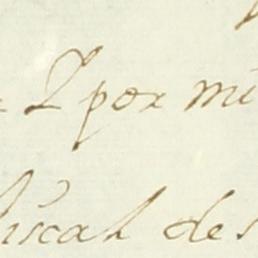 Y por mi
fiscal des